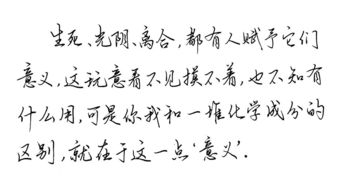 生死、光阴、离合,都有人赋予它们
意义,这玩意看不见摸不着,也不知有
什么用,可是你我和一堆化学成分的
区别,就在于这一点‘意义’.